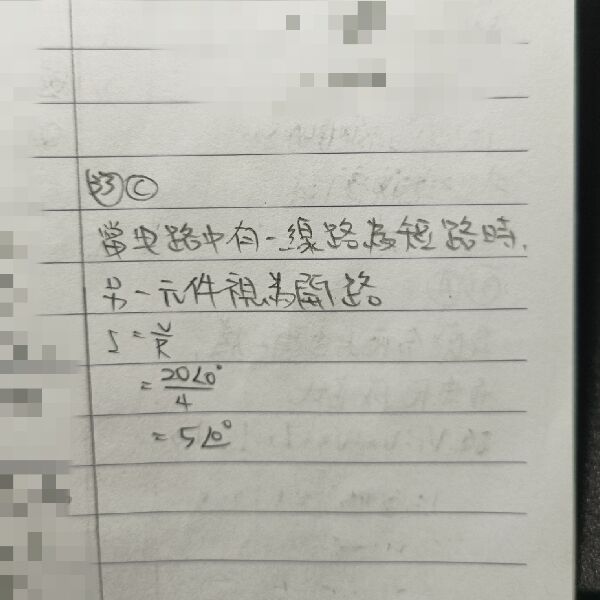 33 C
當电路中有一線路為短路時,
另一元件視為開路。
I = V/R
= 20∠0°/4
= 5∠0°